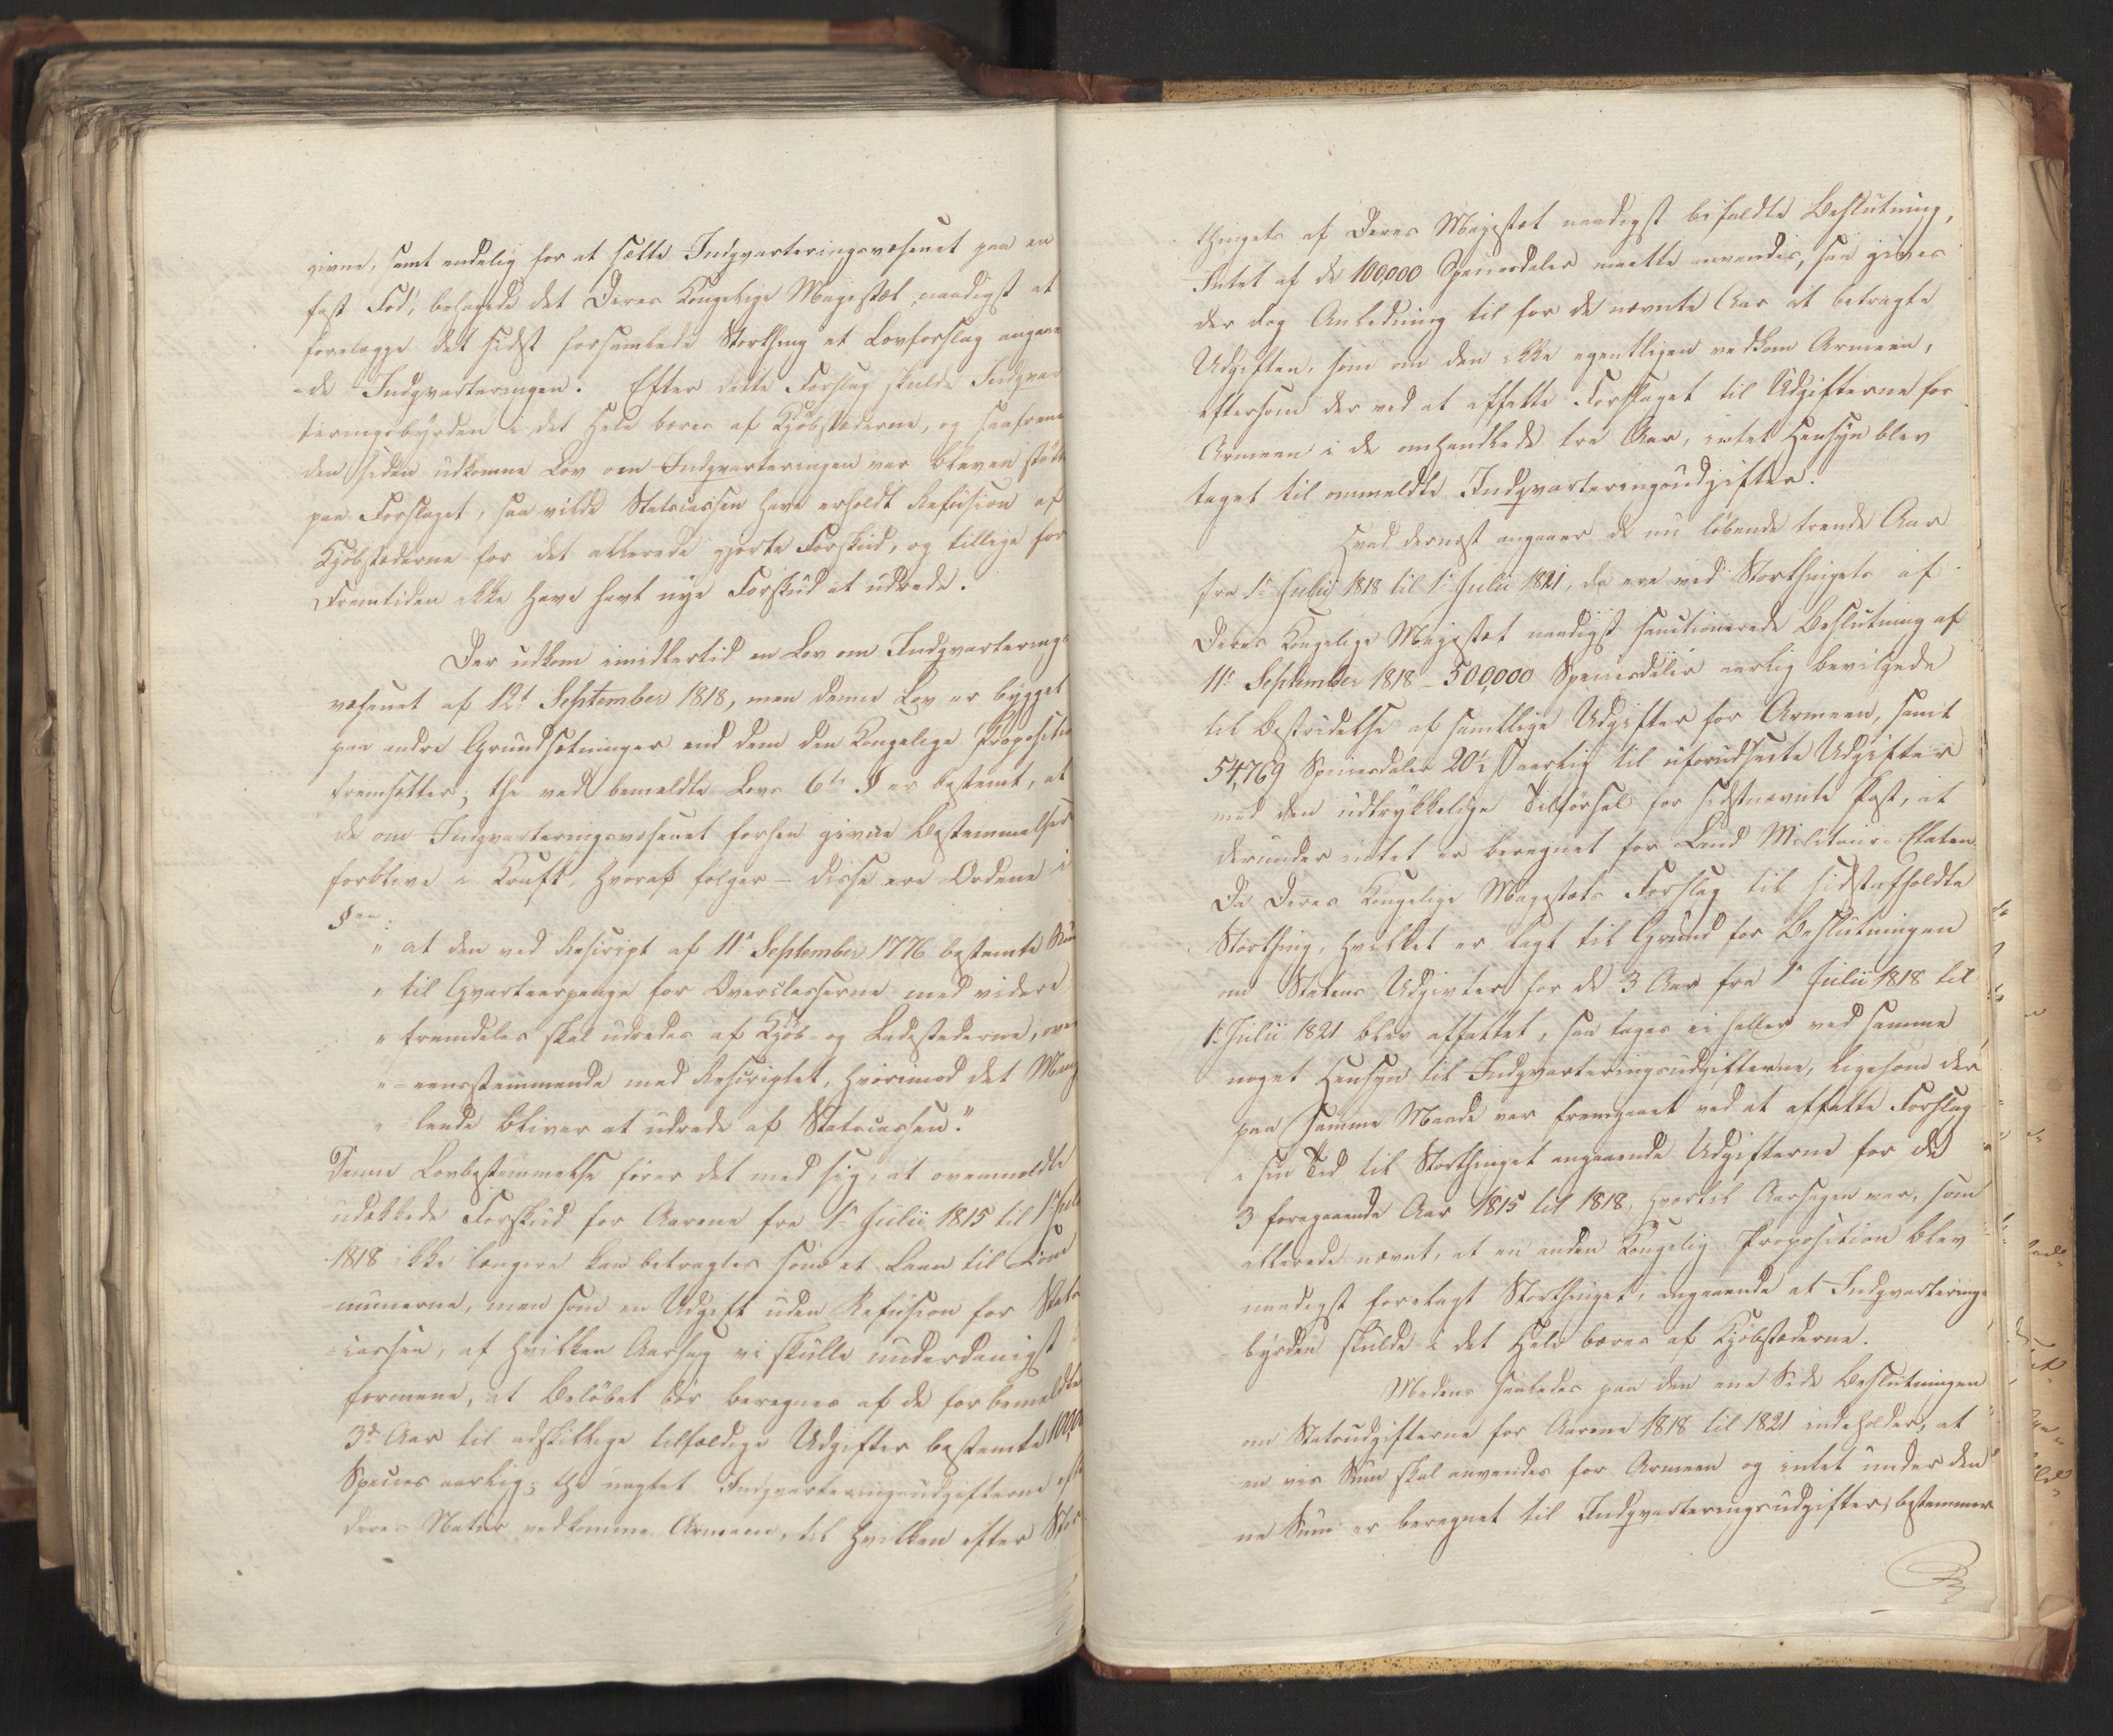 givne, samt endelig for at sætte Indqvarteringsvæsenet paa en
fast Fod, behagede det Deres Kongelige Majestæt naadigst at
forelægge det sidst forsamlede Storthing et Lovforslag angaaen
=de Indqvarteringen. Efter dette Forslag skulde Indqvar
teringsbyrden i det Hele bæres af Kjøbstæderne, og saafremt
den siden udkomne Lov om Indqvarteringen var bleven støttet
paa Forslaget, saa vilde Statscassen have erholdt Refusion af
Kjøbstæderne for det allerede gjorte Forskud, og tillige for
Fremtiden ikke have havt nye Forskud at udrede.
Der udkom imidlertid en Lov om Indqvarterings
væsenet af 12t September 1818, men denne Lov er bygget
paa andre Grundsætninger end dem den Kongelige Proposition
fremsætter; thi ved bemeldte Lovs 6te § er bestemt, at
de om Indqvarteringsvæsenet forhen givne Bestemmelser
forblive i Kraft, hvoraf følger – disse ere Ordene i
§en:
" at den ved Rescript af 11t September 1776 bestemte Sum
" til Qvarteerpenge for Overclasserne med videre
" fremdeles skal udredes af Kjøb- og Ladestederne, over
" =eensstemmende med Rescriptet, hvorimod det Mang
" =lende bliver at udrede af Statscassen."
Denne Lovbestemmelse fører det med sig, at ovenmeldte
udækkede Forskud for Aarene fra 1t Julii 1815 til 1t Julii
1818 ikke længere kan betragtes som et Laan til Com
=munerne, men som en Udgift uden Refusion for Stats
=cassen, af hvilken Aarsag vi skulle underdanigst
formene, at Beløbet bør beregnes af de for bemeldte
3de Aar til adskillige tilfældige Udgifter bestemte 100,000
Species aarlig; thi uagtet Indqvarteringsudgifterne efter
deres Natur vedkomme Armeen, til hvilken efter Stor
thingets af Deres Majestæt naadigst bifaldte Beslutning,
Intet af de 100,000 Speciesdaler maatte anvendes, saa gives
der dog Anledning til for de nævnte Aar at betragte
Udgiften, som om den ikke egentligen vedkom Armeen,
eftersom der ved at affatte Forslaget til Udgifterne for
Armeen i de omhandlede tre Aar, intet Hensyn blev
taget til ommeldte Indqvarteringsudgifter.
Hvad dernæst angaaer de nu løbende trende Aar
fra 1t Julii 1818 til 1t Julii 1821, da ere ved Storthingets af
Deres Kongelige Majestæt naadigst sanctionerede Beslutning af
11t September 1818 – 500,000 Speciesdaler aarlig bevilgede
til Bestridelse af samtlige Udgifter for Armeen, samt
54,769 Speciesdaler 20½ ß aarlig til uforudseete Udgifter
med den udtrykkelige Tilførsel for sidstnævnte Post, at
derunder intet er beregnet for Land Militair-Etaten.
Da Deres Kongelige Majestæts Forslag til sidstafholdte
Storthing, hvilket er lagt til Grund for Beslutningen
om Statens Udgivter for de 3 Aar fra 1t Julii 1818 til
1t Julii 1821 blev affattet, saa toges ei heller ved samme
noget Hensyn til Indqvarteringsudgifterne, ligesom der
paa samme Maade var fremgaaet ved at affatte Forslag
i sin Tid til Storthinget angaaende Udgifterne for de
3 foregaaende Aar 1815 til 1818, hvortil Aarsagen var, som
allerede nævnt, at en anden Kongelig Proposition blev
naadigst forelagt Storthinget, angaaende at Indqvarterings
=byrden skulde i det Hele bæres af Kjøbstæderne.
Medens saaledes paa den ene Side Beslutningen
om Statsudgifterne for Aarene 1818 til 1821 indeholder, at
en vis Sum skal anvendes for Armeen og intet under den
ne Sum er beregnet til Indqvarteringsudgifter, bestemmer